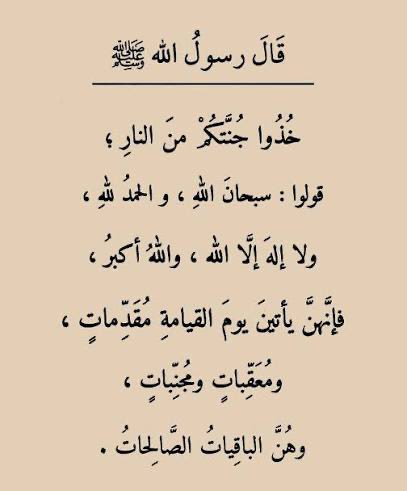 قَالَ رسولُ الله ﷺ
خُذُوا جُنَّتكُمْ منَ النارِ ؛
قولوا : سبحانَ اللهِ ، و الحمدُ للهِ ،
ولا إلهَ إلَّا الله ، واللهُ أكبرُ ،
فإنَّهنَّ يأتينَ يومَ القيامةِ مُقَدِّماتٍ ،
ومُعَقِّباتٍ ومُجنِّباتٍ ،
وهُنَّ الباقِياتُ الصَّالِحاتُ .